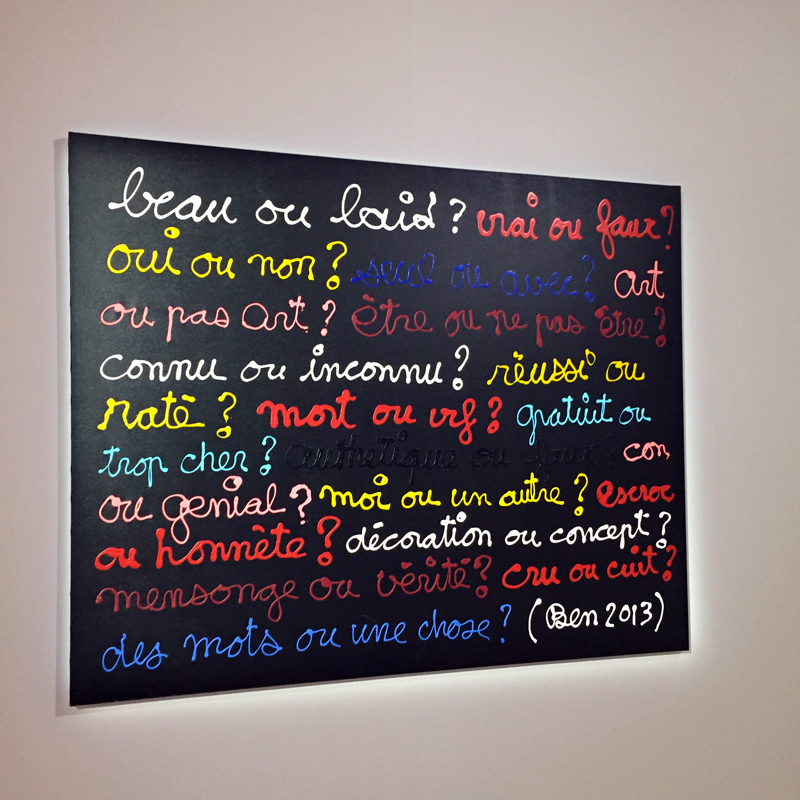 beau ou laid ? vrai ou faux ?
oui ou non ? seul ou avec ? art
ou pas art ? être ou ne pas être ?
connu ou inconnu ? réussi ou
raté ? mort ou vif ? gratuit ou
trop cher ? authetique ou faux ? con
ou genial ? moi ou un autre ? escroc
ou honnête ? décoration ou concept ?
mensonge ou vérité ? cru ou cuit ?
des mots ou une chose ? (Ben 2013)